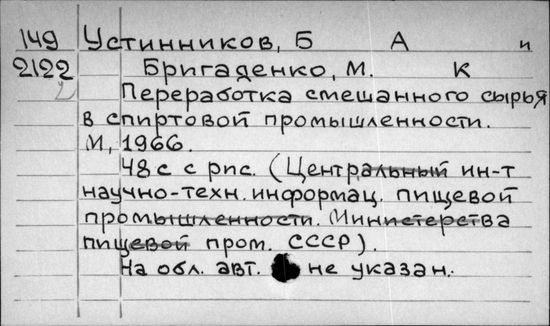 149 Устинников, Б А и
2122 Бригаденко, М. К
Переработка смешанного сырья
в спиртовой промышленности.
М, 1966.
48 с с рис. (Центральный ин-т
научно-техн. информац. пищевой
промышленности. Министерства
пищевой пром. СССР).
На обл. авт. не указан.